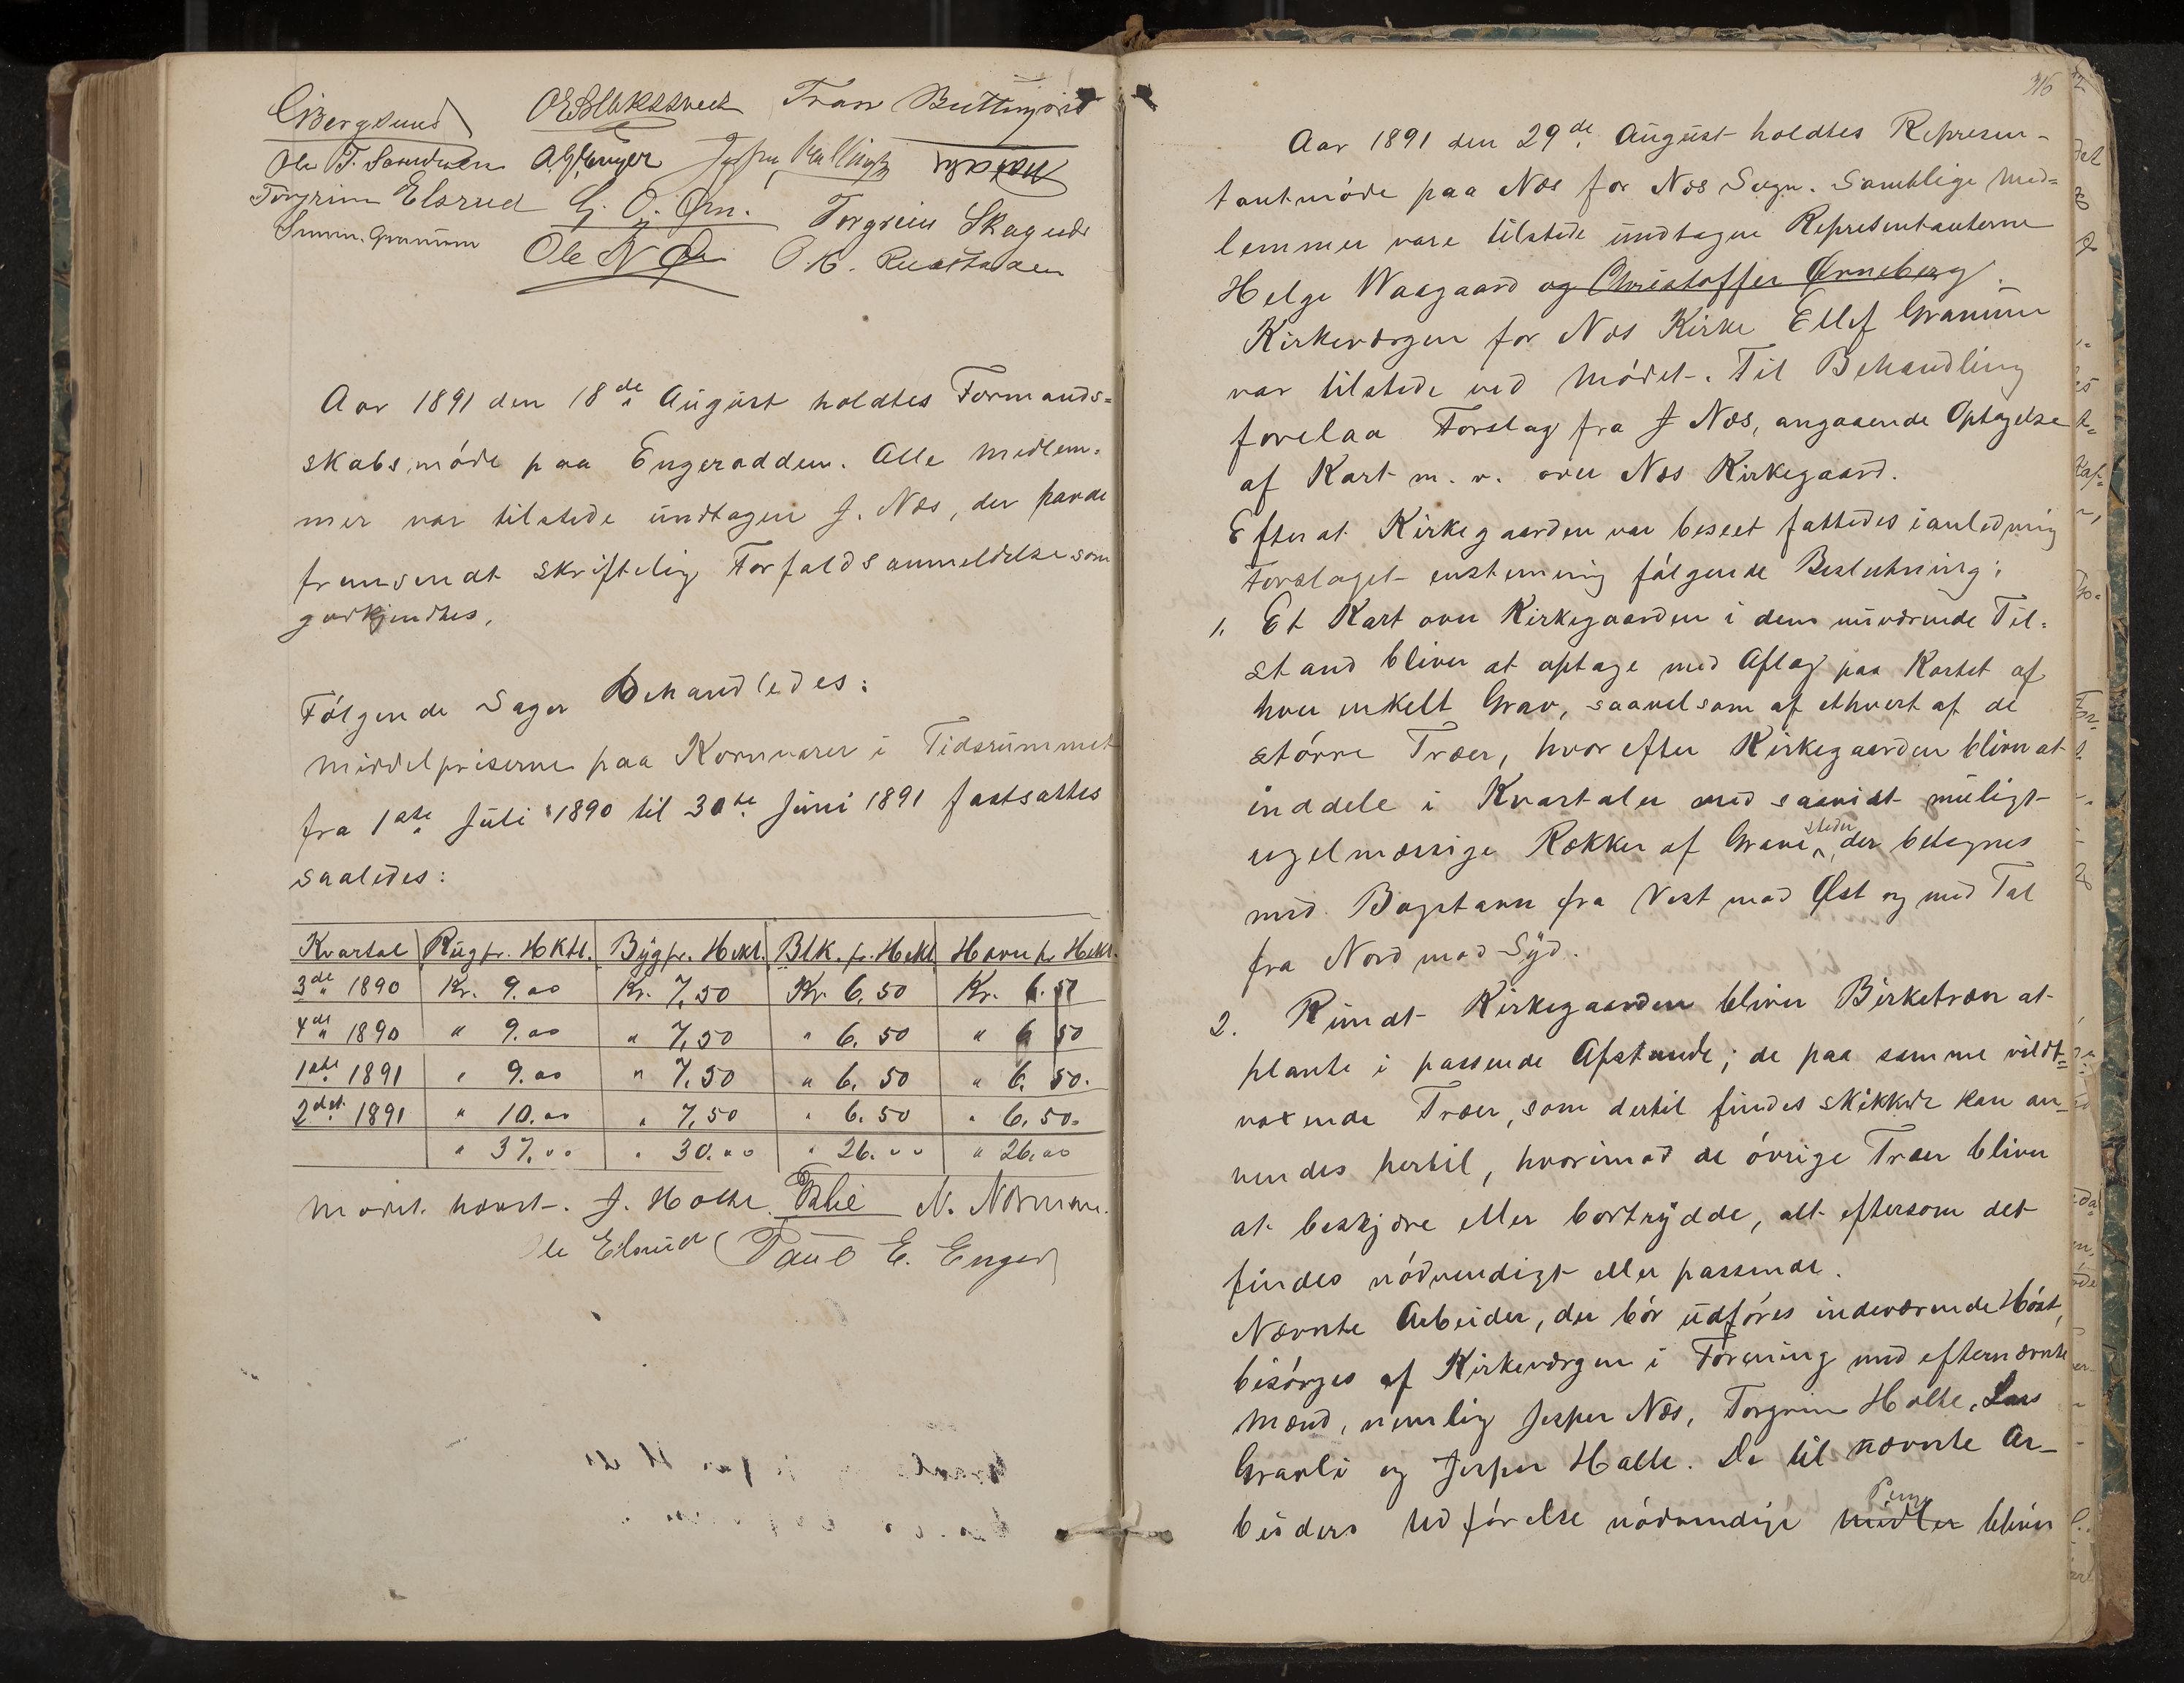 Ole T. Torgrim Elsrud G. O. Øen. Torgrim Skagnæs
Gunn. Grønnum Ole N Øen O. K. Rustaden
Aar 1891 den 18de August holdtes Formands=
skabsmöde paa Engerodden. Alle Medlem=
mer var tilstede undtagen J. Næs, der havde
fremsendt skriftelig Forfaldsanmeldelse som
godkjendtes,
Fölgende Sager Behandledes:
Middelpriserne paa Kornvarer i Tidsrummet
fra 1ste Juli 1890 til 30te Juni 1891 fastsattes
saaledes:
Kvartal Rug pr. Hktl. Byg pr. Hekt. Blk. pr. Hekt Havre pr Hekt.
3de 1890 Kr. 9.00 Kr. 7,50 Kr. 6,50 Kr. 6.50
4de 1890 " 9.00 " 7,50 " 6,50 " 6 50
1ste 1891 " 9.00 " 7,50 " 6,50 " 6,50.
2det 1891 " 10.00 " 7,50 " 6.50 " 6,50.
" 37.00 " 30.00 " 26.00 " 26.00
Mödet hævet. J. Holte. N. Nørman.
Ole Elsrud Paul E. Enger
316
Aar 1891 den 29de August holdtes Represen-
tantmöde paa Næs for Næs Sogn. Samtlige Med=
lemmer vare tilstede undtagen Representanterne
Helge Waagaard og Christoffer Ørneberg.
Kirkeværgen for Næs Kirke Ellef Granum
var tilstede ved Mödet. Til Behandling
forelaa Forslag fra J Næs, angaaende Optagelse
af Kart m. v. over Næs Kirkegaard.
Efter at Kirkegaarden var beseet fattedes i anledning
Forslaget enstemmig fölgende Beslutning:
1. Et Kart over Kirkegaarden i dens nuværende Til=
stand bliver at optage med Aflæg paa Kartet af
hver enkelt Grav, saavelsom af ethvert af de
större Træer, hvorefter Kirkegaarden bliver at
inddele i Kvartaler med saavidt muligt
regelmæssige Rækker af Gravesteder, der betegnes
med Bogstaver fra Vest mod Øst og med Tal
fra Nord mod Syd.
2. Rundt Kirkegaarden bliver Birketræer at
plante i passende Afstande; de paa samme vildt=
voxende Træer, som dertil findes skikkede kan an-
vendes hertil, hvorimod de övrige Træer bliver
at beskjære eller bortrydde, alt eftersom det
findes nödvendigt eller passende.
Nævnte Arbeider, der bör udföres indeværende Höst,
besörges af Kirkeværgen i Forening med efternævnte
Mænd, nemlig Jesper Næs, Torgrim Holte, Lars
Gravli og Jesper Holte. De til nævnte Ar-
beiders Udförelse nödvendige Penge Midler bliver